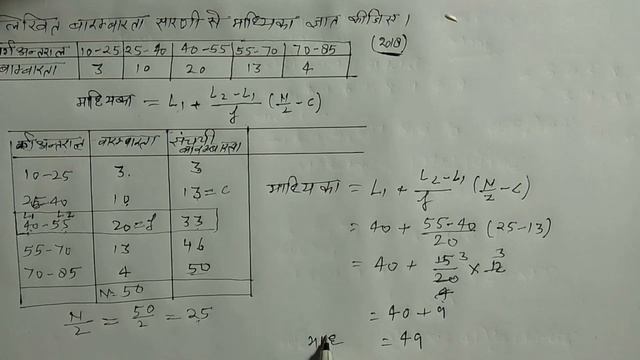 लिखित बारम्बारता सारणी से माध्यिका ज्ञात कीजिए।
(2018)
वर्ग अन्तराल 10-25 25-40 40-55 55-70 70-85
बाम्बारता 3 10 20 13 4
माध्यिका = L₁ + L₂-L₁/f (N/2 - C)
वर्ग अन्तराल बारम्बारता संचयी बारम्बारता
10-25 3 3
25-40 10 13 = C
L₁ L₂
40-55 20=f 33
55-70 13 46
70-85 4 50
N=50
N/2 = 50/2 = 25
माध्यिका = L₁ + L₂-L₁/f (N/2 - C)
= 40 + 55-40/20 (25-13)
= 40 + 15 3/20 4 × 12 3
= 40 + 9
= 49